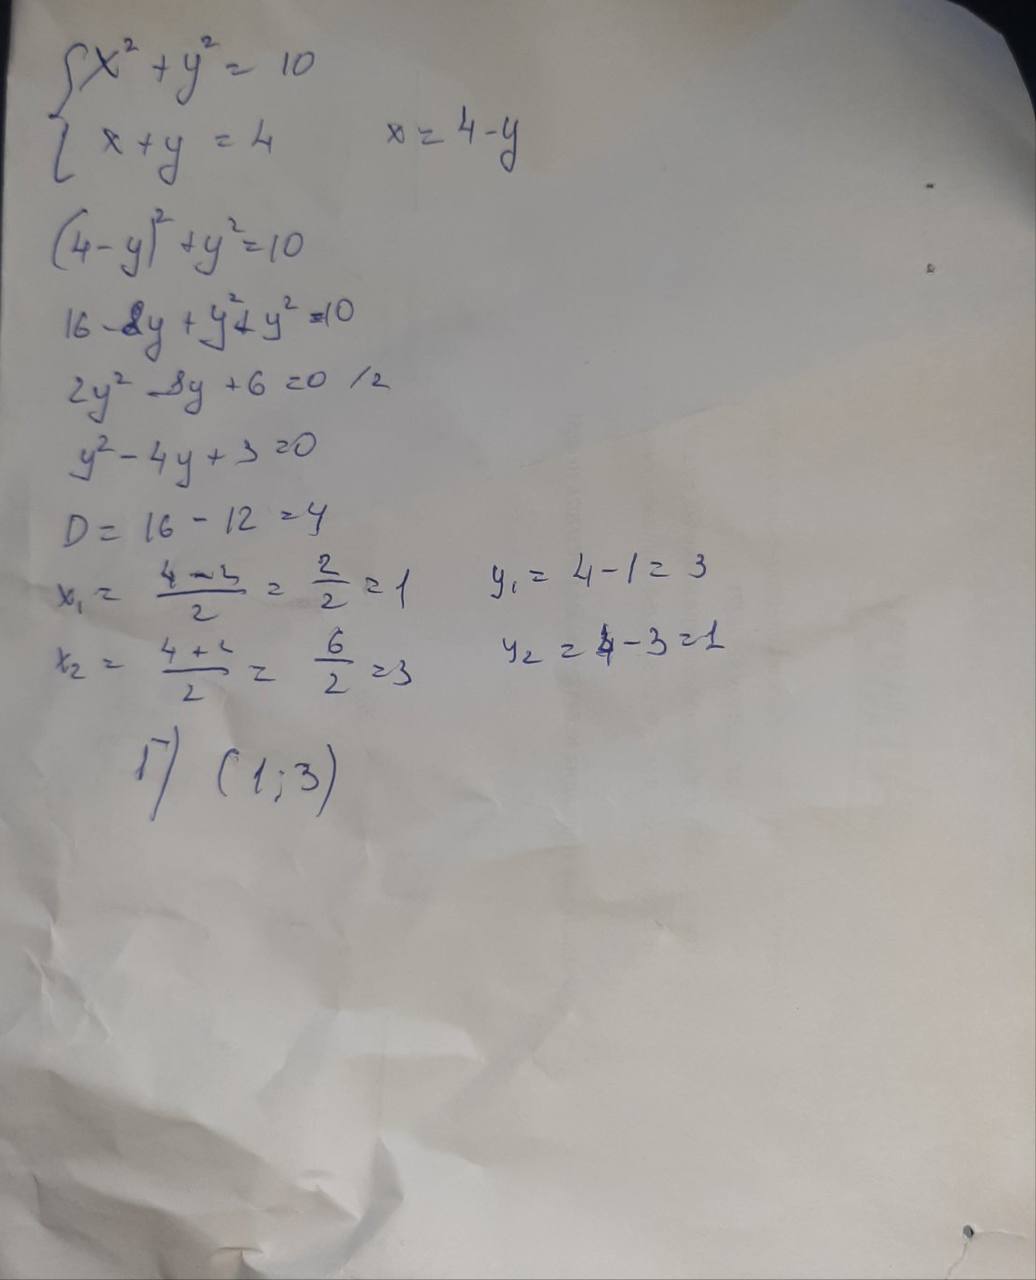 {x² + y² = 10
x + y = 4 x = 4 - y
(4 - y)² + y² = 10
16 - 8y + y² + y² = 10
2y² - 8y + 6 = 0 /2
y² - 4y + 3 = 0
D = 16 - 12 = 4
x₁ = 4 - 2 / 2 = 2/2 = 1 y₁ = 4 - 1 = 3
x₂ = 4 + 2 / 2 = 6/2 = 3 y₂ = 4 - 3 = 1
Г) (1; 3)